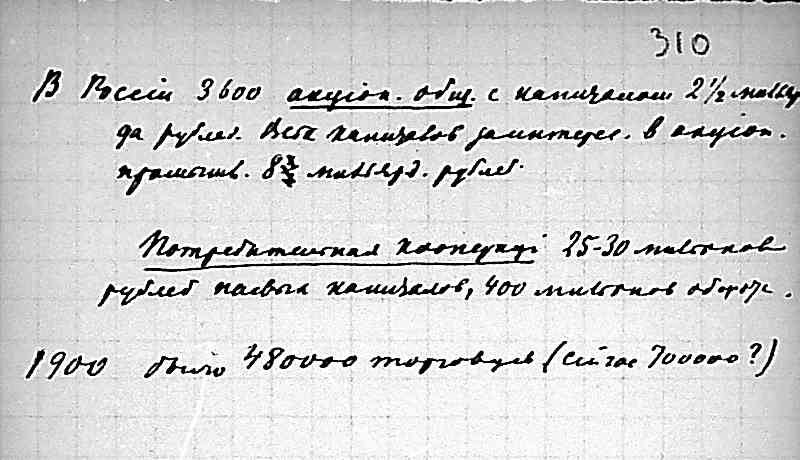 310
В Россіи 3600 акціон. общ. с капиталом 2½ миллiар
да рублей. Всех капиталов заинтерес. в акціон.
промышл. 8¾ милліард. рублей.
Потребительная кооперація 25-30 милліонов
рублей паевых капиталов, 400 милліонов оборота.
1900 было 480000 торговцев (сейчас 700000?)